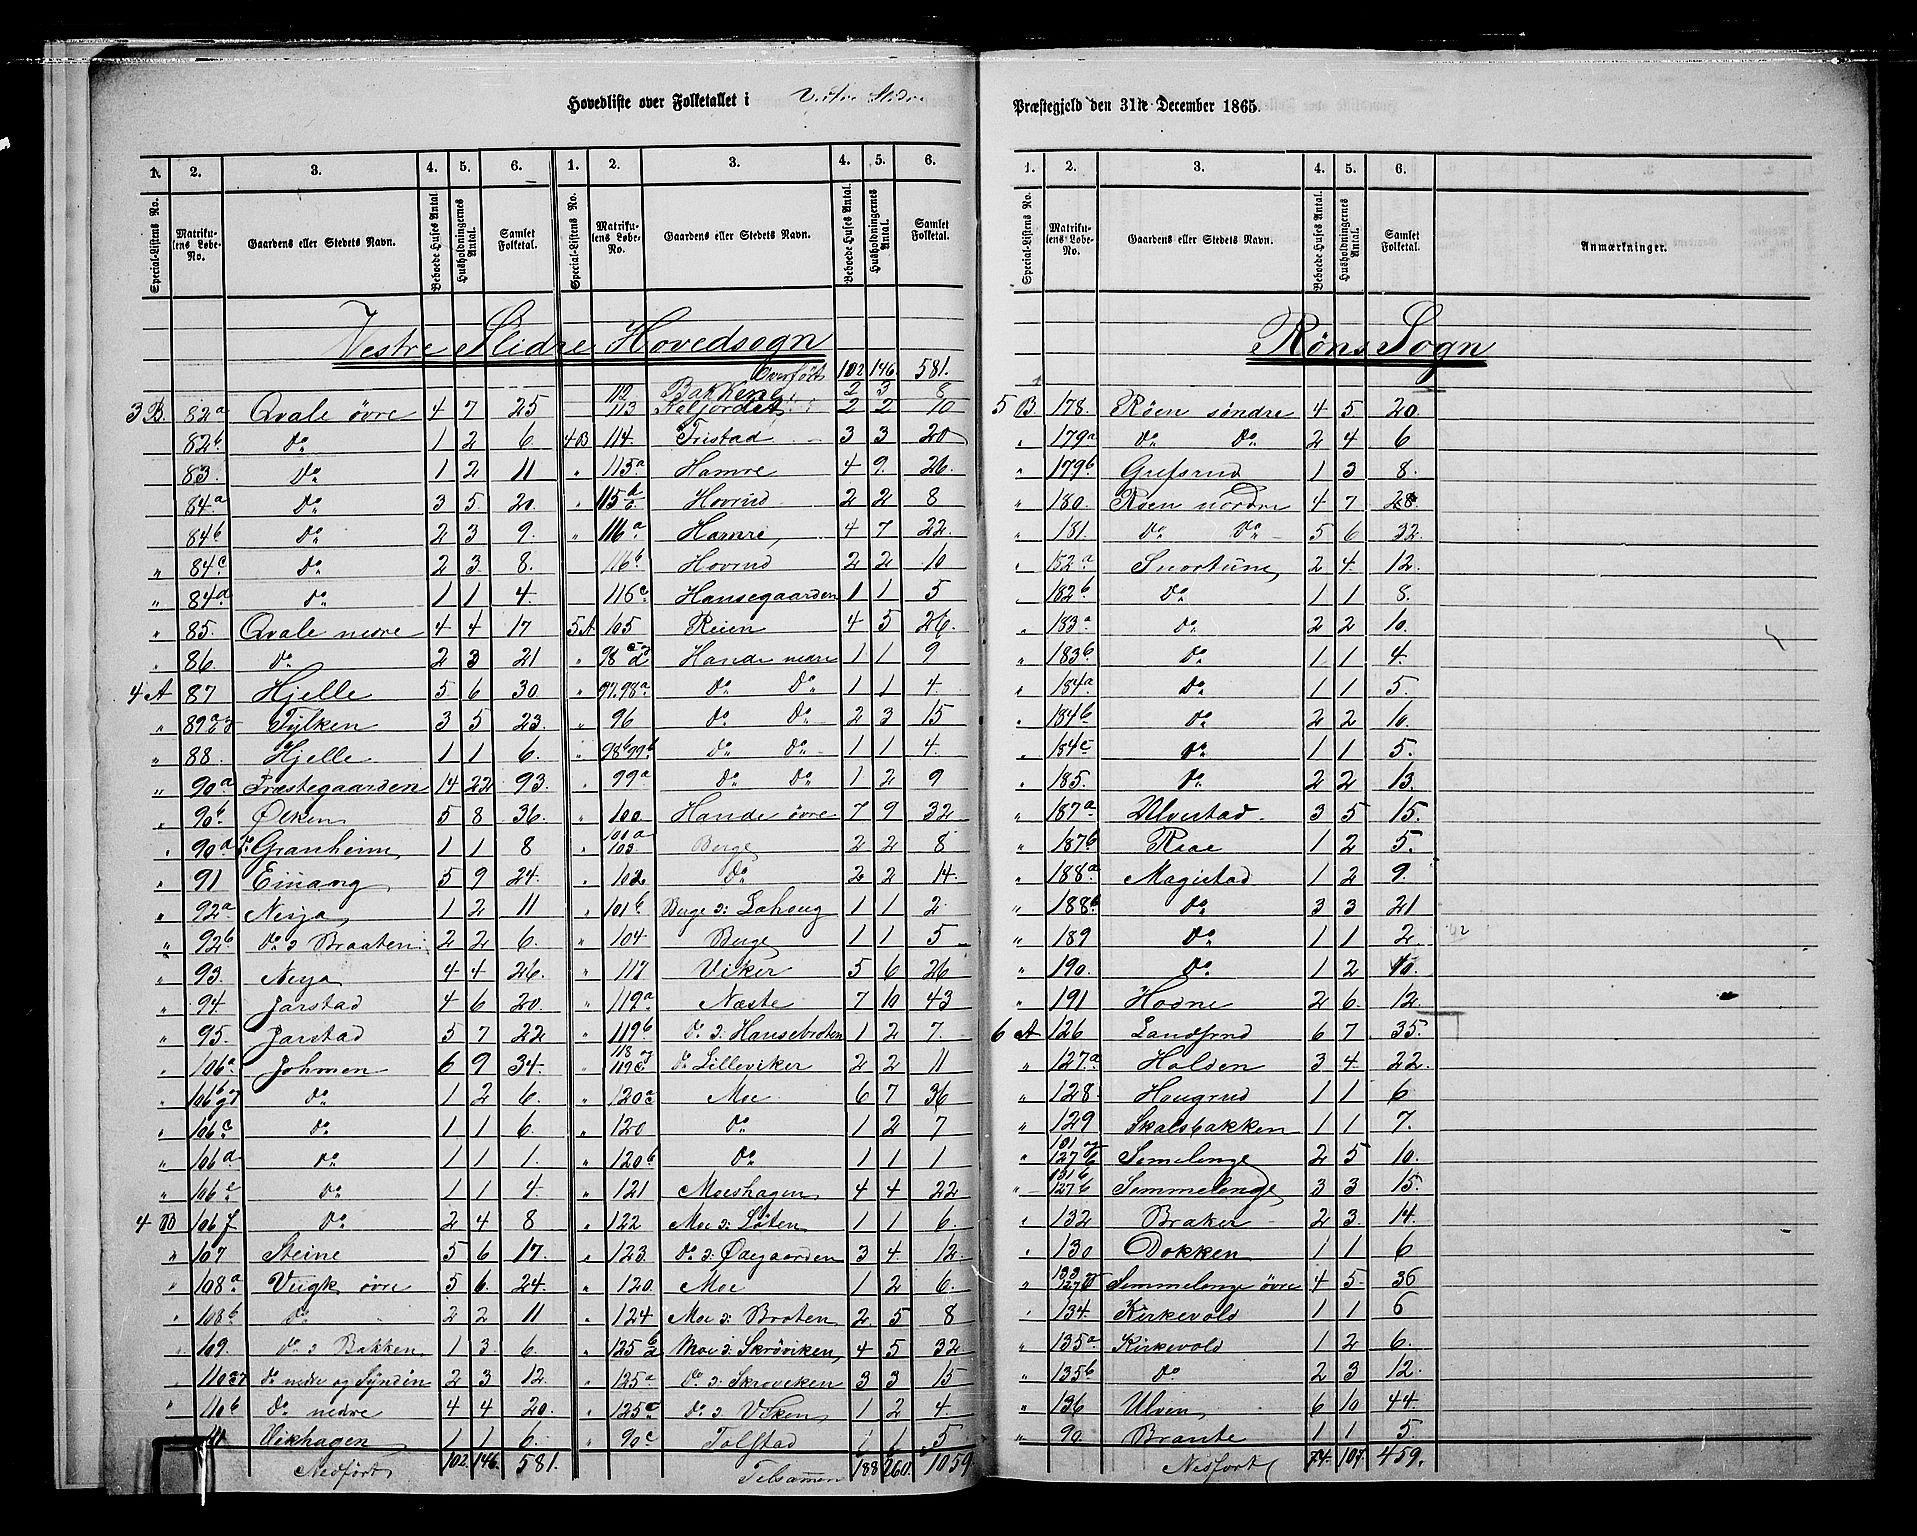 Hovedliste over Folketallet i Vestre Slidre
Præstegjeld den 31te December 1865.
1. 2. 3. 4. 5. 6. 1. 2. 3. 4. 5. 6.
Special-Listens No. Matrikulens Løbe-No. Gaardens eller Stedets Navn. Beboede Huses Antal. Husholdningernes Antal. Samlet Folketal. Special-Listens No. Matrikulens Løbe-No. Gaardens eller Stedets Navn. Beboede Huses Antal. Husholdningernes Antal. Samlet Folketal.
Vestre Slidre Hovedsogn
3 B. 82a Qvale øvre 4 7 25
82b Do 1 2 6
83. Do 1 2 11
84a Do 3 5 20.
84b Do 2 3 9.
„ 84c Do 2 3 8.
„ 84d Do 1 1 4.
„ 85. Qvale nedre 4 4 17
„ 86 Do 2 3 21
4 A 87 Hjelle 5 6 30
„ 89a Fylken 3 5 23.
„ 88. Hjelle 1 1 6.
„ 90a Præstegaarden 14 22 93.
„ 90b Ølken 5 8 36.
„ 90a Granheim 1 1 8
„ 91 Einang 5 9 24.
„ 92a Nesja 1 2 11
„ 92b Do : Braaten 2 2 6.
„ 93 Nesja 4 4 26.
„ 94. Jarstad 4 6 20.
„ 95. Jarstad 5 7 22
„ 106a Johmen 6 9 34.
„ 106b Do 1 2 6.
„ 106c Do 1 1 6.
„ 106d Do 1 1 1.
„ 106e Do 1 1 4.
4 B 106f Do 2 4 8
„ 107 Steine 5 6 17.
„ 108a Veigk øvre 5 6 24
„ 108b Do 2 2 11
„ 109. Do : Bakken 1 3 6.
„ 110 Do nedre og Syndin 2 3 12.
„ 110b Do nedre 4 4 20.
111 Vikhagen 1 1 6.
Nedført 102 146. 581.
Overført 102 146. 581.
112 Bakkene 2 3 8
113 2 2 10
4 B 114. Fristad 3 3 20
„ 115a Hamre 4 9 26.
„ 115 Hovrud 2 2 8
„ 116a Hamre 4 7 22
116b Hovrud 2 2 10
116c Hansegaarden 1 1 5
5 A 105 Reien 4 5 26.
„ 98 c og d Hande nedre 1 1 9
„ 97.98a Do Do 1 1 4.
„ 96 Do Do 2 3 15
„ 98b 99b Do Do 1 1 4.
„ 99a Do Do 1 2 9
„ 100 Hande øvre 7 9 32
„ 101a 103 Berge 2 2 8
„ 102 Do 2 2 14
„ 101b Berge : Lohaug 1 1 2
„ 104 Berge 1 1 5
„ 117 Viker 5 6 26
„ 119a Næste 7 10 43
„ 119b Do : Hansebroten 1 2 7.
„ 118 og 119c Do Lilleviker 2 2 11
„ 120a Moe 6 7 36
„ 120 Do 1 2 7
„ 120b Do 1 1 1
„ 121 Moeshagen 4 4 22
„ 122 Moe : Løten 1 1 6.
„ 123 Do : Ødegaarden 3 4 12
„ 120. Moe 1 2 6.
„ 124 Moe : Broten 2 5 8
„ 125 Moe : Skrøviken 4 5 32
„ 125a Do : Skrøviken 3 3 15
„ 125c Do : Viken 1 2 4.
„ 90c Tolstad 1 1 5
Tilsammen 188 260. 1059
1. 2. 3. 4. 5. 6.
Special-Listens No. Matrikulens Løbe-No. Gaardens eller Stedets Navn. Beboede Huses Antal. Husholdningernes Antal. Samlet Folketal. Anmærkninger.
Røns Sogn
5 B. 178. Røen søndre 4 5 20.
„ 179a Do Do 2 4 6
„ 179b Grefsrud 1 3 8.
„ 180. Røen nordre 4 7 28.
„ 181. Do Do 5 6 32
„ 182a Snortum 2 4. 12.
„ 182b Do 1 1 8.
„ 183a Do 2 2 10.
„ 183b Do 1 1 4.
„ 184a Do 1 1 5.
„ 184b Do 2 2 10.
„ 184c Do 1 1 5.
„ 185. Do 2 2 13.
„ 187a Ulvestad 3 5 15.
„ 187b Raae 1 2 5.
„ 188a Magistad 1 2 9.
„ 188b Do 3 3 21
„ 189 Do 1 1 2
„ 190. Do 1 2 10.
„ 191 Hovne 2 6. 12.
6 A 126 Landsrud 6 7 35.
„ 127a Holden 3 4 22
„ 128. Hougrud 1 1 6
„ 129 Skalsbakken 1 1 7.
„ 127b Semelenge 2 5 10.
„ 131b 127b Semmelenge 3 3 15.
„ 132 Braker 2 3. 14.
„ 130 Dokken 1 1 6
„ 133 127 Semmelenge øvre 4 5 36
„ 134. Kirkevold 1 1 6
„ 135a Kirkevold 1 2 6.
„ 135b Do 2 3 12.
„ 136 Ulven 6 10 44.
„ 90 Brante 1 1 5.
Nedført 74. 107 459.